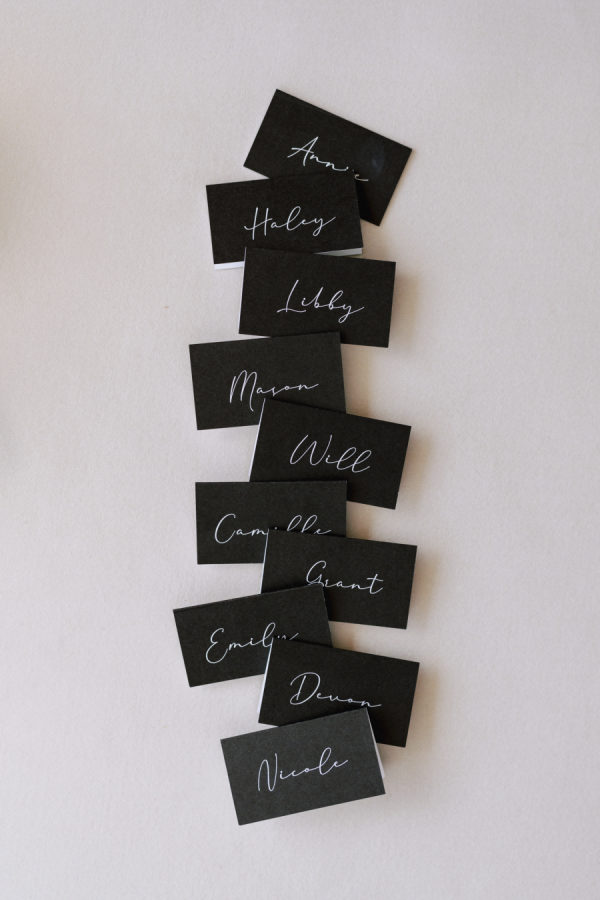 Annie
Haley
Libby
Mason
Will
Camille
Grant
Emily
Devon
Nicole